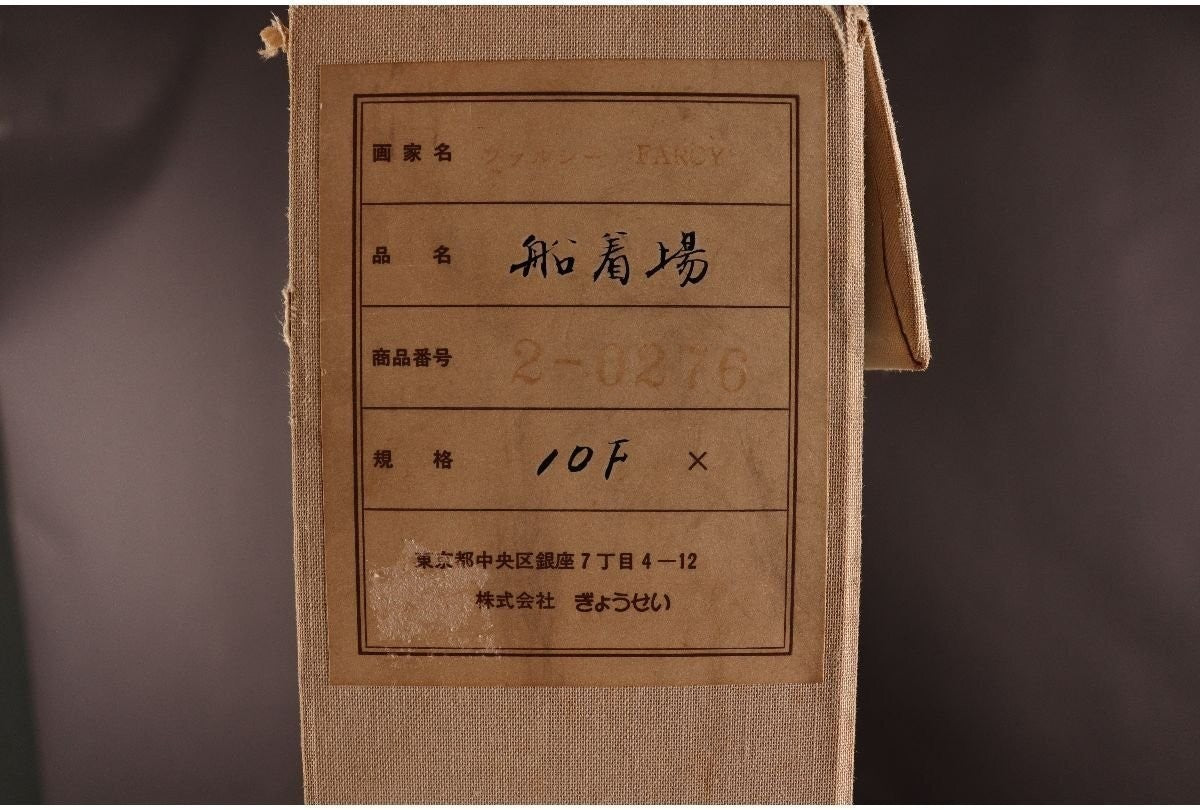 画家名 ファルシー FARCY
品名 船着場
商品番号 2-0276
規格 10F ×
東京都中央区銀座7丁目4-12
株式会社 ぎょうせい